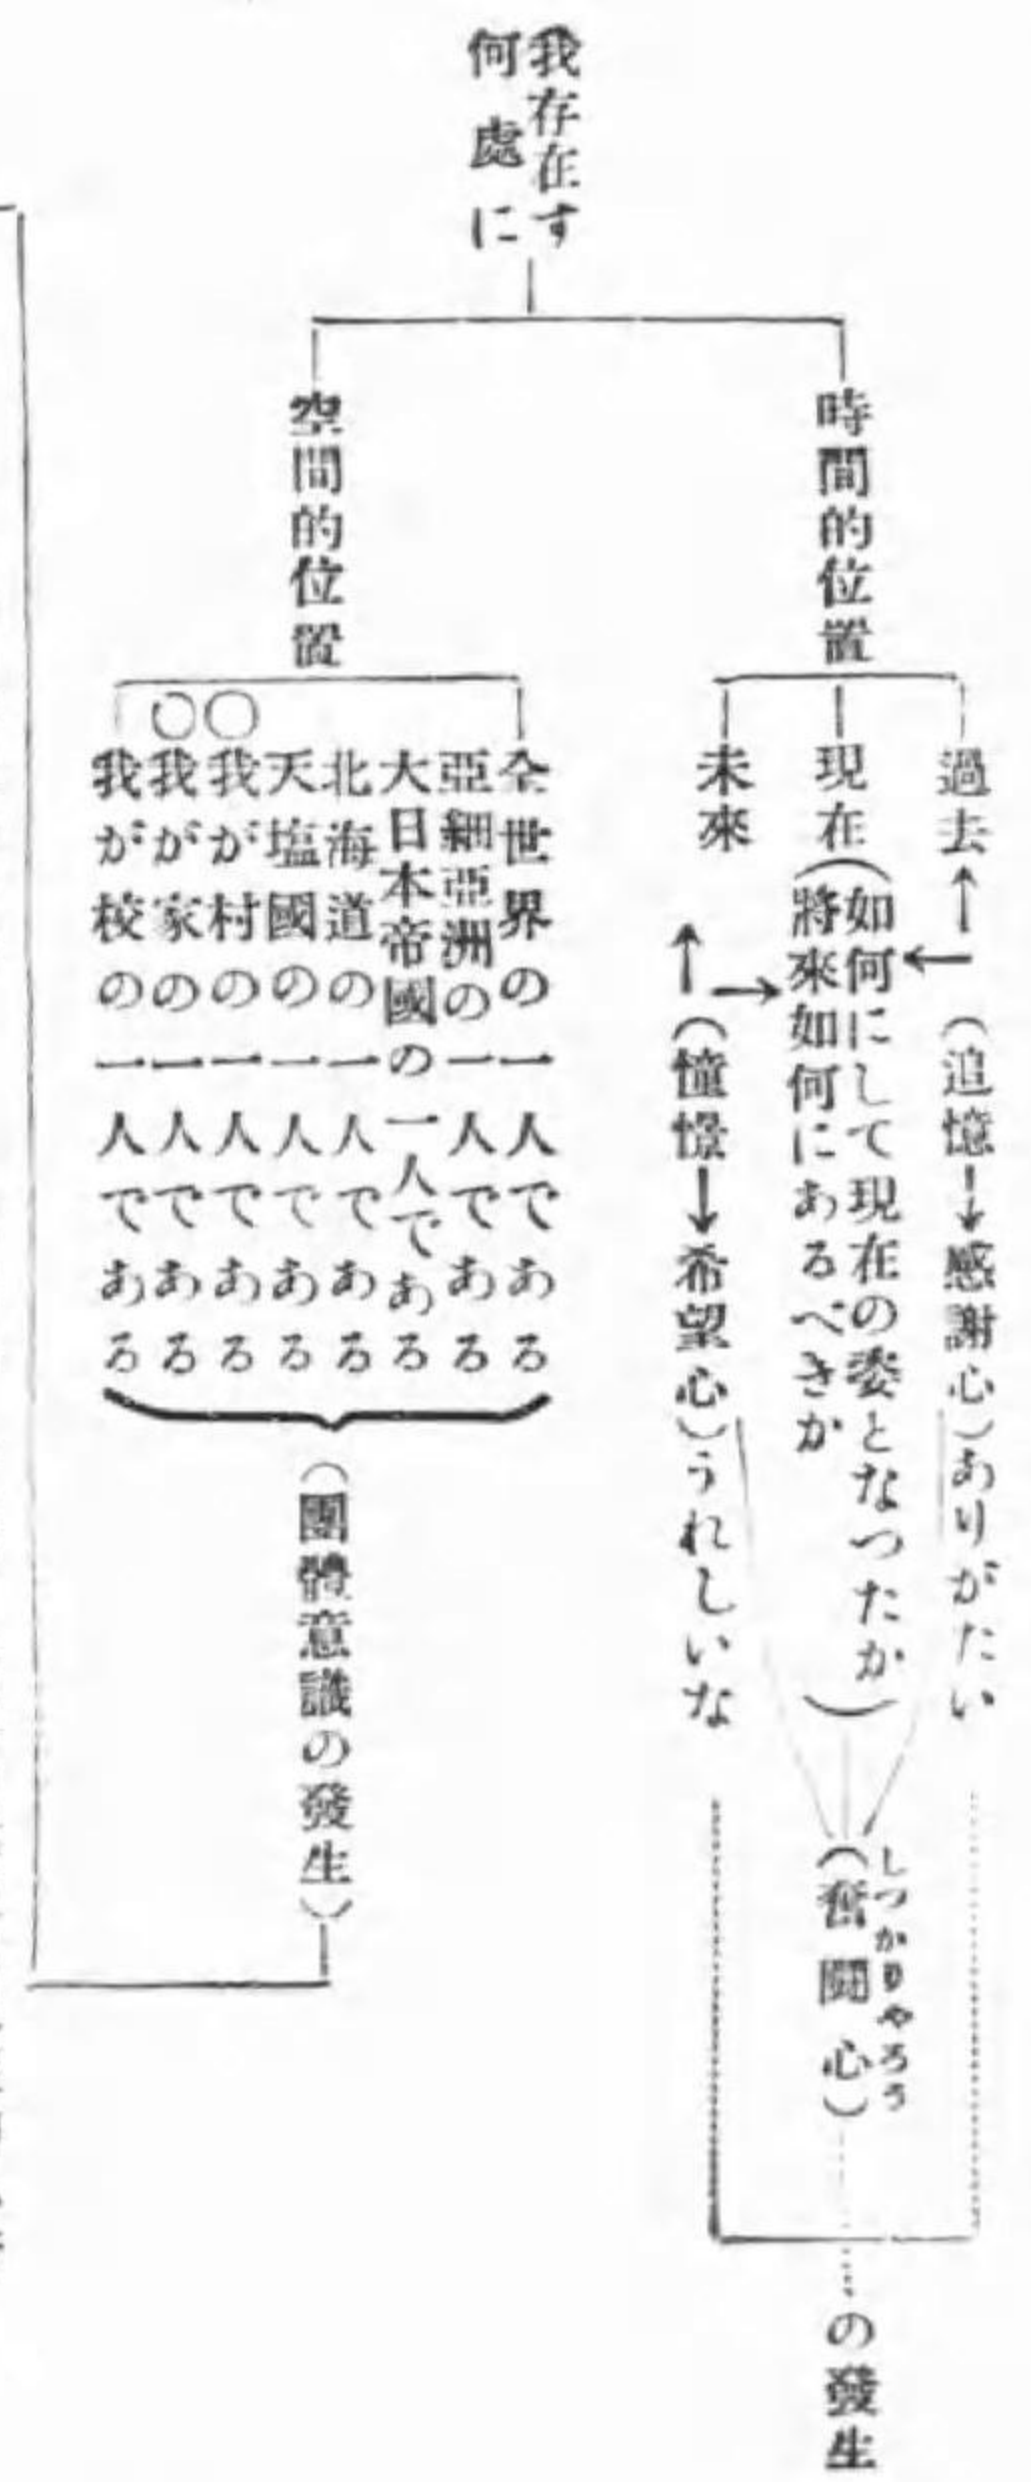 我存在す
何處に
時間的位置
過去
(追憶→感謝心)ありがたい
現在
(如何にして現在の姿となつたか
將來如何にあるべきか)
未來
(憧憬→希望心)うれしいな
しつかりやろう
(奮鬪心)
の發生
空間的位置
全世界の一人である
亞細亞洲の一人である
大日本帝國の一人である
北海道の一人である
天塩國の一人である
○我が村の一人である
○我が家の一人である
我が校の一人である
(團體意識の發生)